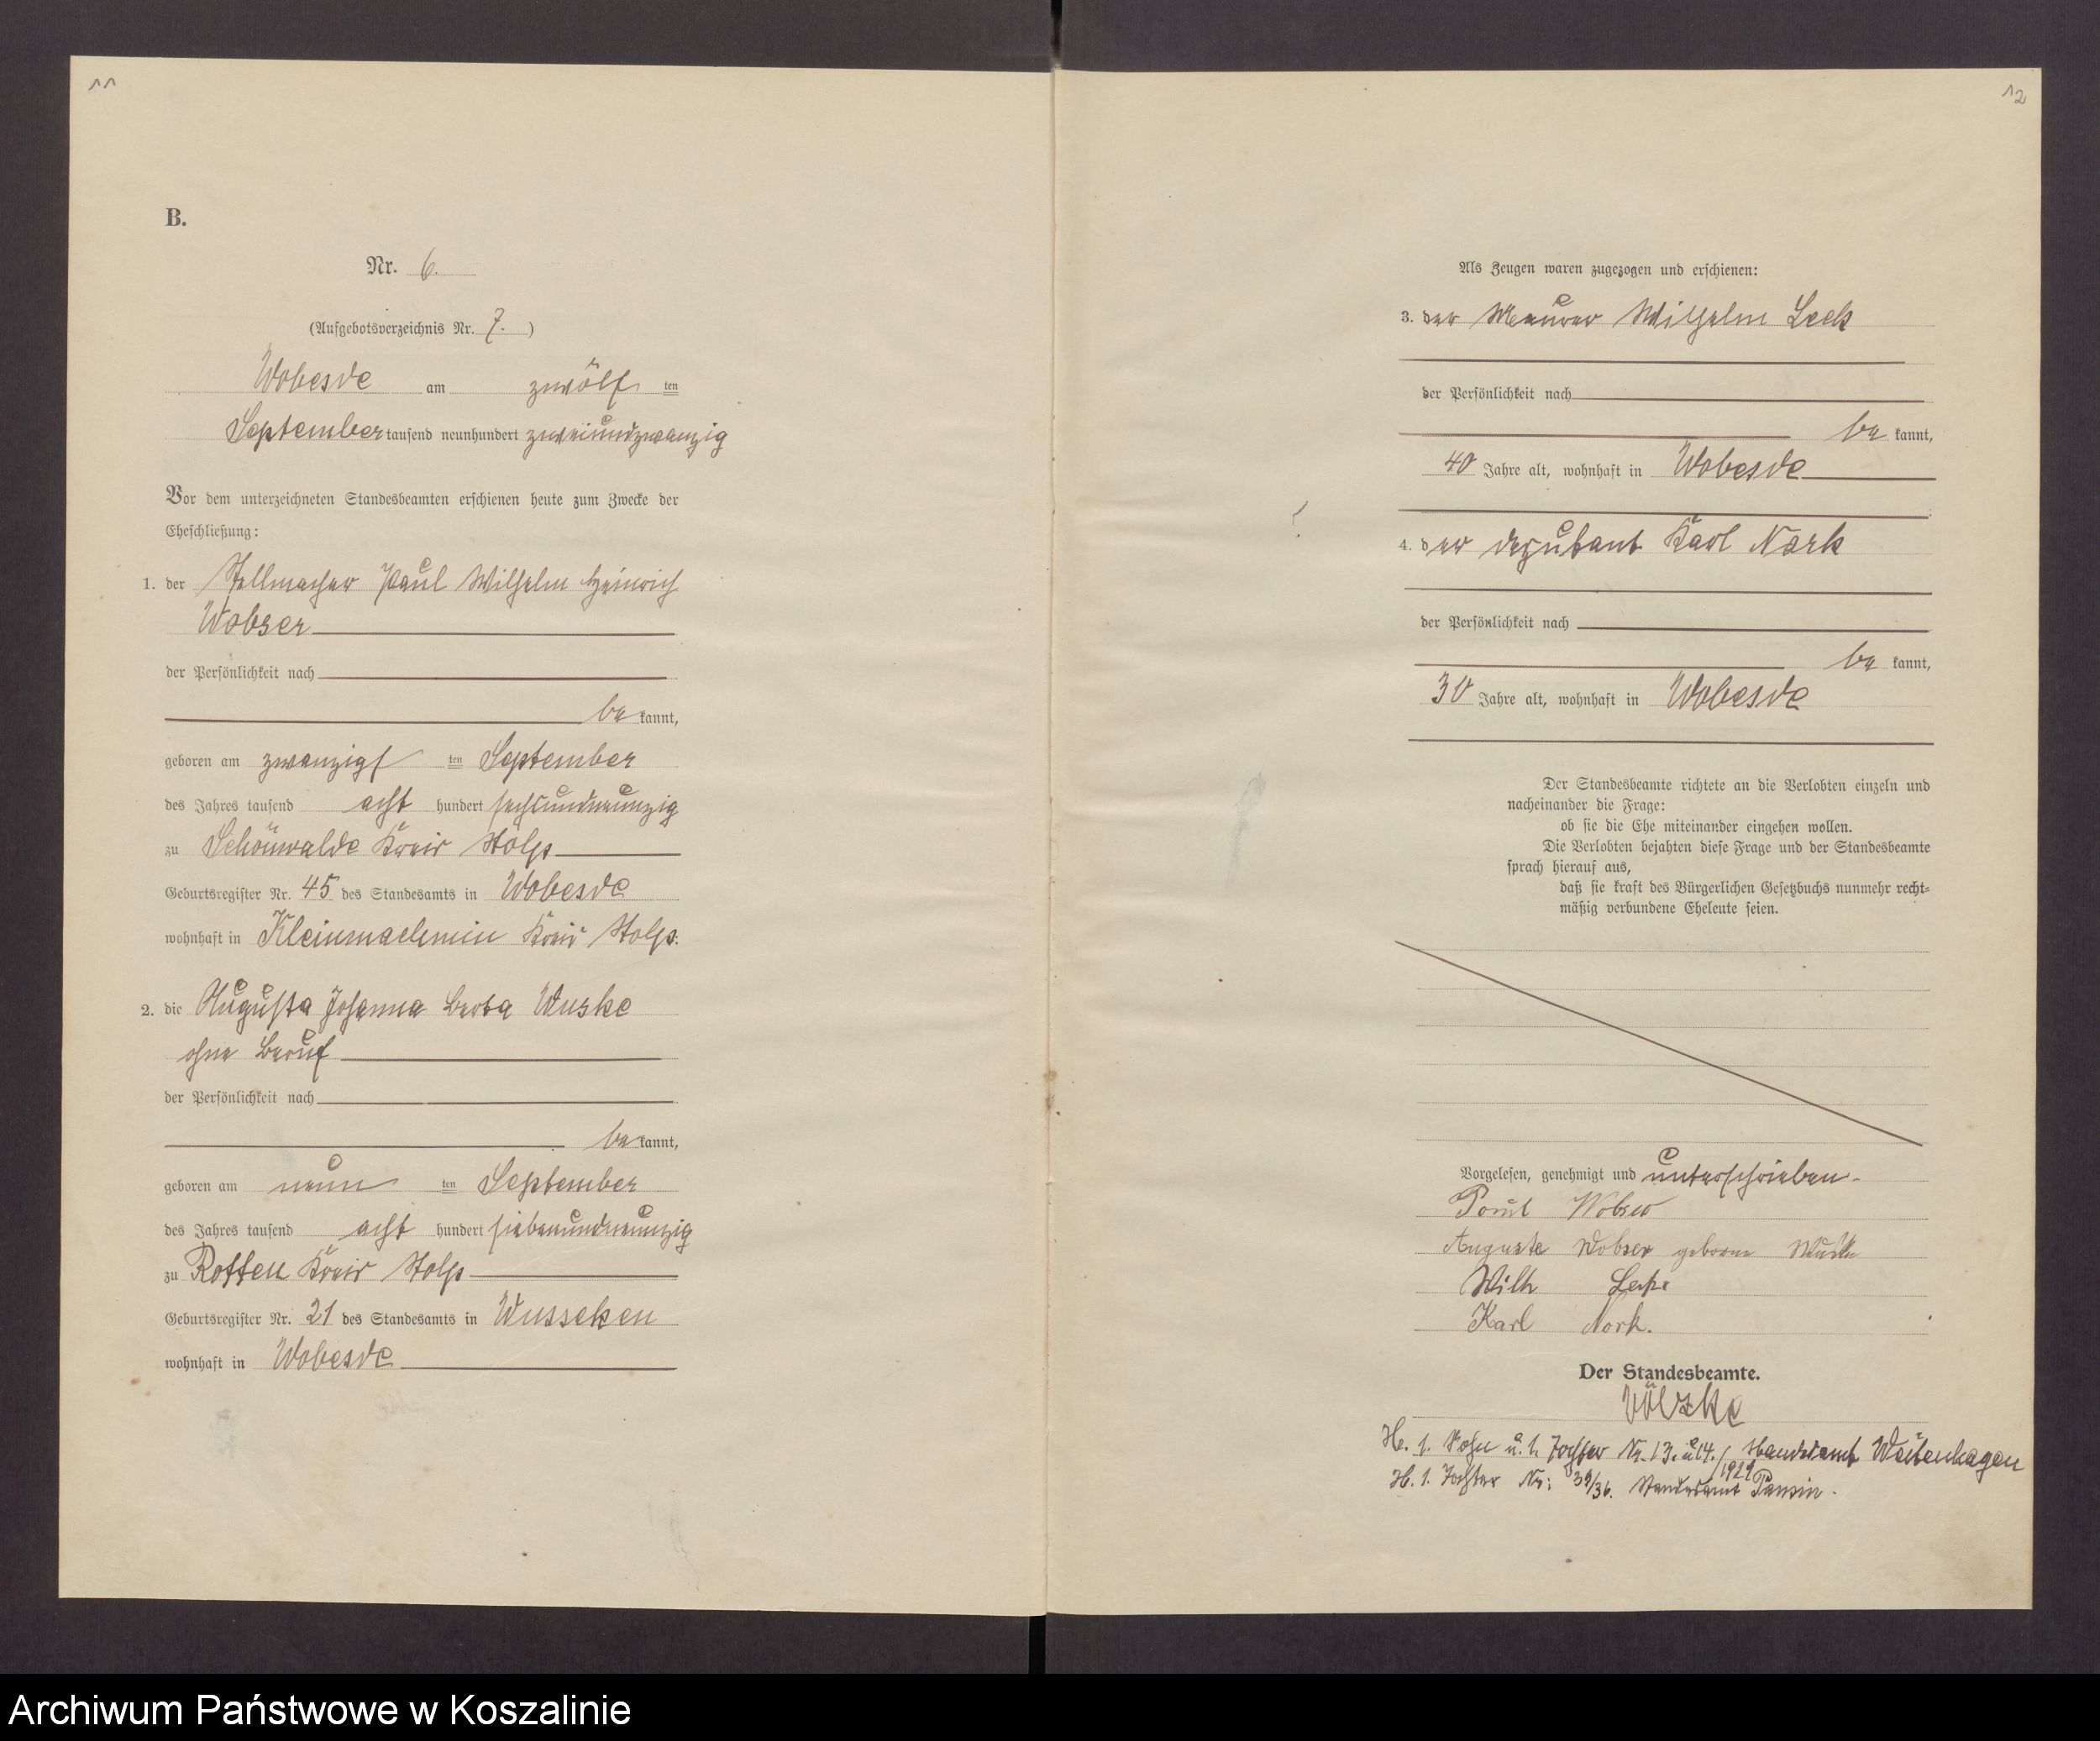 11
B.
Nr. 6.
(Aufgebotsverzeichnis Nr. 7. )
Wobesde am zwölf ten
September tausend neunhundert zweiundzwanzig
Vor dem unterzeichneten Standesbeamten erschienen heute zum Zwecke der
Eheschließung:
1. der Stellmacher Paul Wilhelm Heinrich
Wobser
der Persönlichkeit nach
be kannt,
geboren am zwanzigs ten September
des Jahres tausend acht hundert sechsundneunzig
zu Schönwalde Kreis Stolp
Geburtsregister Nr. 45 des Standesamts in Wobesde
wohnhaft in Kleinmachmin Kreis Stolp.
2. die Augusta Johanna Berta Wuske
ohne Beruf
der Persönlichkeit nach
be kannt,
geboren am neun ten September
des Jahres tausend acht hundert siebenundneunzig
zu Rotten Kreis Stolp
Geburtsregister Nr. 21 des Standesamts in Wusseken
wohnhaft in Wobesde
12
Als Zeugen waren zugezogen und erschienen:
3. der Maurer Wilhelm Leek
der Persönlichkeit nach
be kannt,
40 Jahre alt, wohnhaft in Wobesde
4. der Deputant Karl Nork
der Persönlichkeit nach
be kannt,
30 Jahre alt, wohnhaft in Wobesde
Der Standesbeamte richtete an die Verlobten einzeln und
nacheinander die Frage:
ob sie die Ehe miteinander eingehen wollen.
Die Verlobten bejahten diese Frage und der Standesbeamte
sprach hierauf aus,
daß sie kraft des Bürgerlichen Gesetzbuchs nunmehr recht-
mäßig verbundene Eheleute seien.
Vorgelesen, genehmigt und unterschrieben.
Paul Wobser
Auguste Wobser geborne Wuske
Wilh
Karl Nork.
Der Standesbeamte.
Völzke
H. 1. Sohn u. 1. Tochter Nr. 13. u 14./1929 Standesamt Weitenhagen
H. 1. Tochter Nr: 39/36. Standesamt
Archiwum Państwowe w Koszalinie